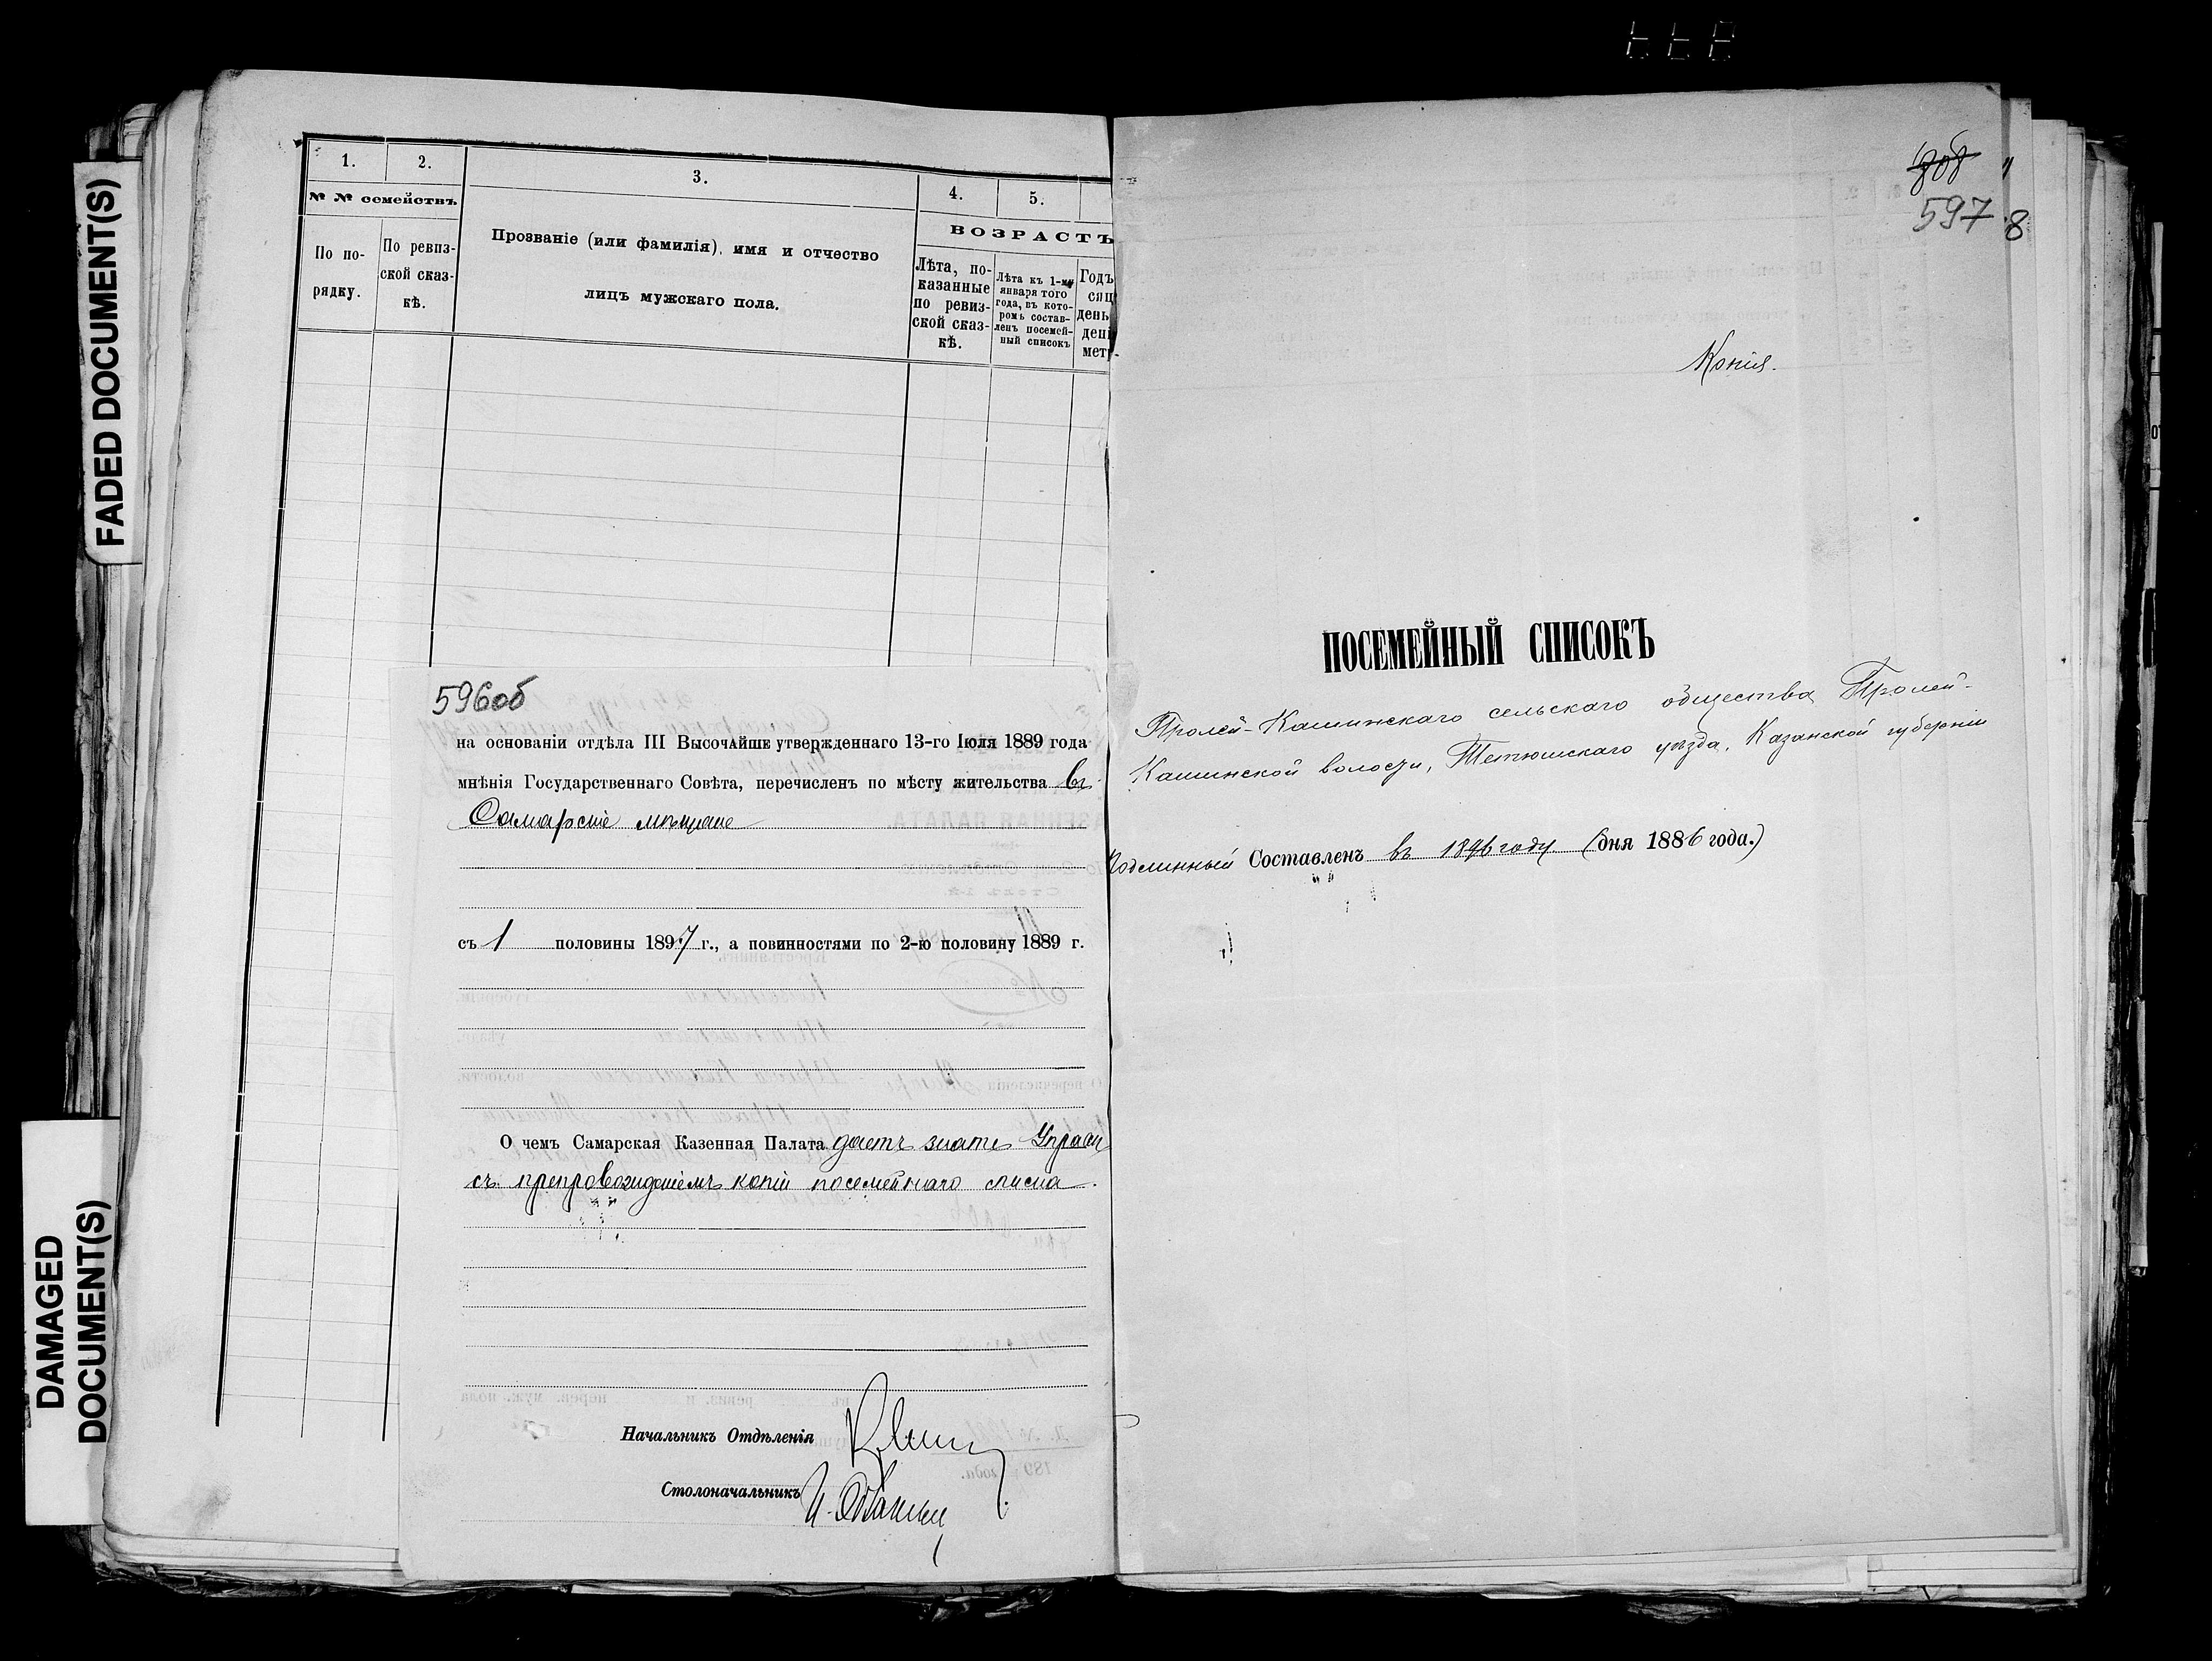 FADED DOCUMENT(S)
DAMAGED
DOCUMENT(S)
1.
2.
3.
4.
5.
№ № семействъ
По по-
рядку.
По ревиз-
ской сказ-
кѣ.
Прозваніе (или фамилія), имя и отчество
лицъ мужскаго пола.
ВОЗРАСТЪ
Лѣта, по-
казанные
по ревиз-
ской сказ-
кѣ.
Лѣта къ 1-му
января того
года, въ кото-
ромъ состав-
ленъ посемей-
ный списокъ
Годъ
сяц
день
ден
мет
596об
на основаніи отдѣла III Высочайше утвержденнаго 13-го Іюля 1889 года
мнѣнія Государственнаго Совѣта, перечисленъ по мѣсту жительства въ
Самарскіе мѣщане
съ 1 половины 1897 г., а повинностями по 2-ю половину 1889 г.
О чемъ Самарская Казенная Палата даетъ знать Управ
съ препровожденіемъ копіи посемейнаго списка.
Начальникъ Отдѣленія
Столоначальникъ
597
8
Копія.
ПОСЕМЕЙНЫЙ СПИСОКЪ
Пролей-Кашинскаго сельскаго общества Пролей-
Кашинской волости, Тетюшскаго уѣзда, Казанской губерніи
Подлинный Составленъ въ 1896 году (дня 1886 года.)